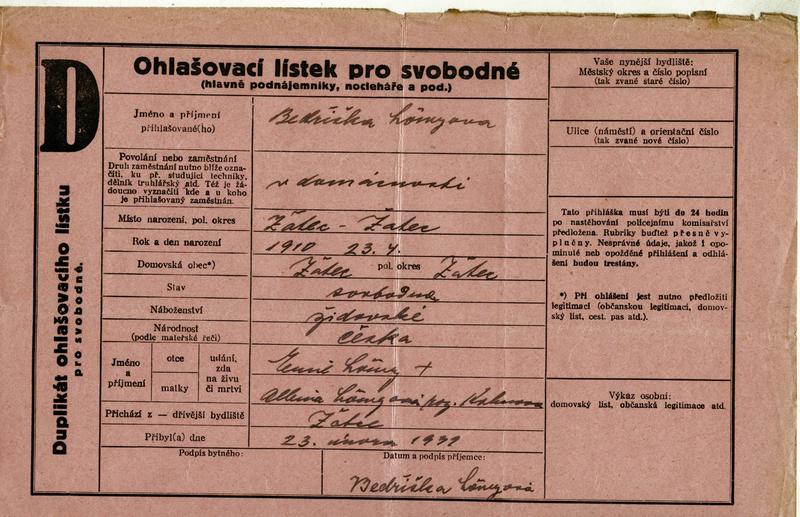 D
Duplikát ohlašovacího lístku
pro svobodné.
Ohlašovací lístek pro svobodné
(hlavně podnájemníky, nocleháře a pod.)
Jméno a příjmení
přihlašované(ho)
Bedřiška Löwyova
Povolání nebo zaměstnání
Druh zaměstnání nutno blíže označiti, ku př. studující techniky,
dělník truhlářský atd. Též je žádoucno vyznačiti kde a u koho
je přihlašovaný zaměstnán.
v domácnosti
Místo narození, pol. okres
Žátec - Žatec
Rok a den narození
1910 23.4.
Domovská obec*)
Žátec pol. okres Žátec
Stav
svobodna
Náboženství
židovské
Národnost
(podle mateřské řeči)
česka
Jméno
a
příjmení
otce
matky
udání,
zda
na živu
či mrtvi
Emil Löwy +
Löwyová roz.
Přichází z — dřívější bydliště
Žátec
Přibyl(a) dne
23. února 1939
Podpis bytného:
Datum a podpis příjemce:
Bedřiška Löwyová
Vaše nynější bydliště:
Městský okres a číslo popisní
(tak zvané staré číslo)
Ulice (náměstí) a orientační číslo
(tak zvané nové číslo)
Tato přihláška musí býti do 24 hodin
po nastěhování policejnímu komisařství
předložena. Rubriky buďtež přesně vyplněny. Nesprávné údaje, jakož i opominuté neb opožděné přihlášení a odhlášení budou trestány.
*) Při ohlášení jest nutno předložiti
legitimaci (občanskou legitimaci, domovský list, cest. pas atd.).
Výkaz osobní:
domovský list, občanská legitimace atd.